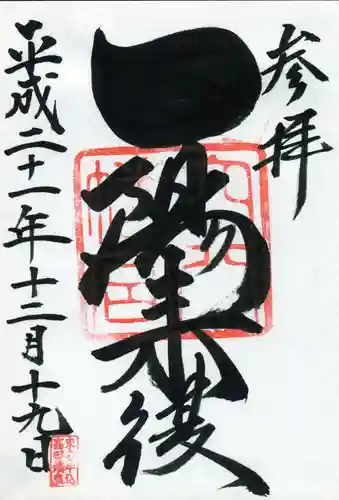 参拝
一陽来復
穴八
幡宮
平成二十一年十二月十九日